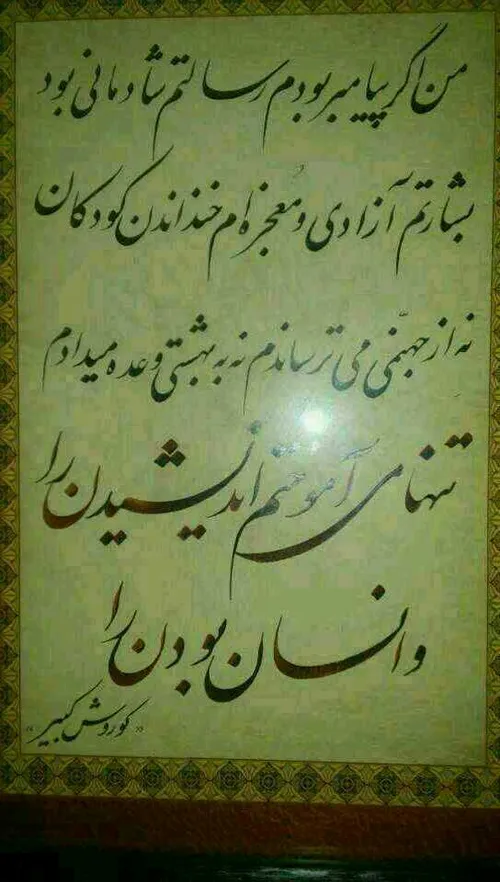 من اگر پیامبر بودم رسالتم شادمانی بود
بشارتم آزادی و مُعجزه ام خنداندن کودکان
نه از جهنّمی می ترساندم نه به بهشتی وعده میدادم
تنها می آموختم اندیشیدن را
و انسان بودن را
«کوروش کبیر»